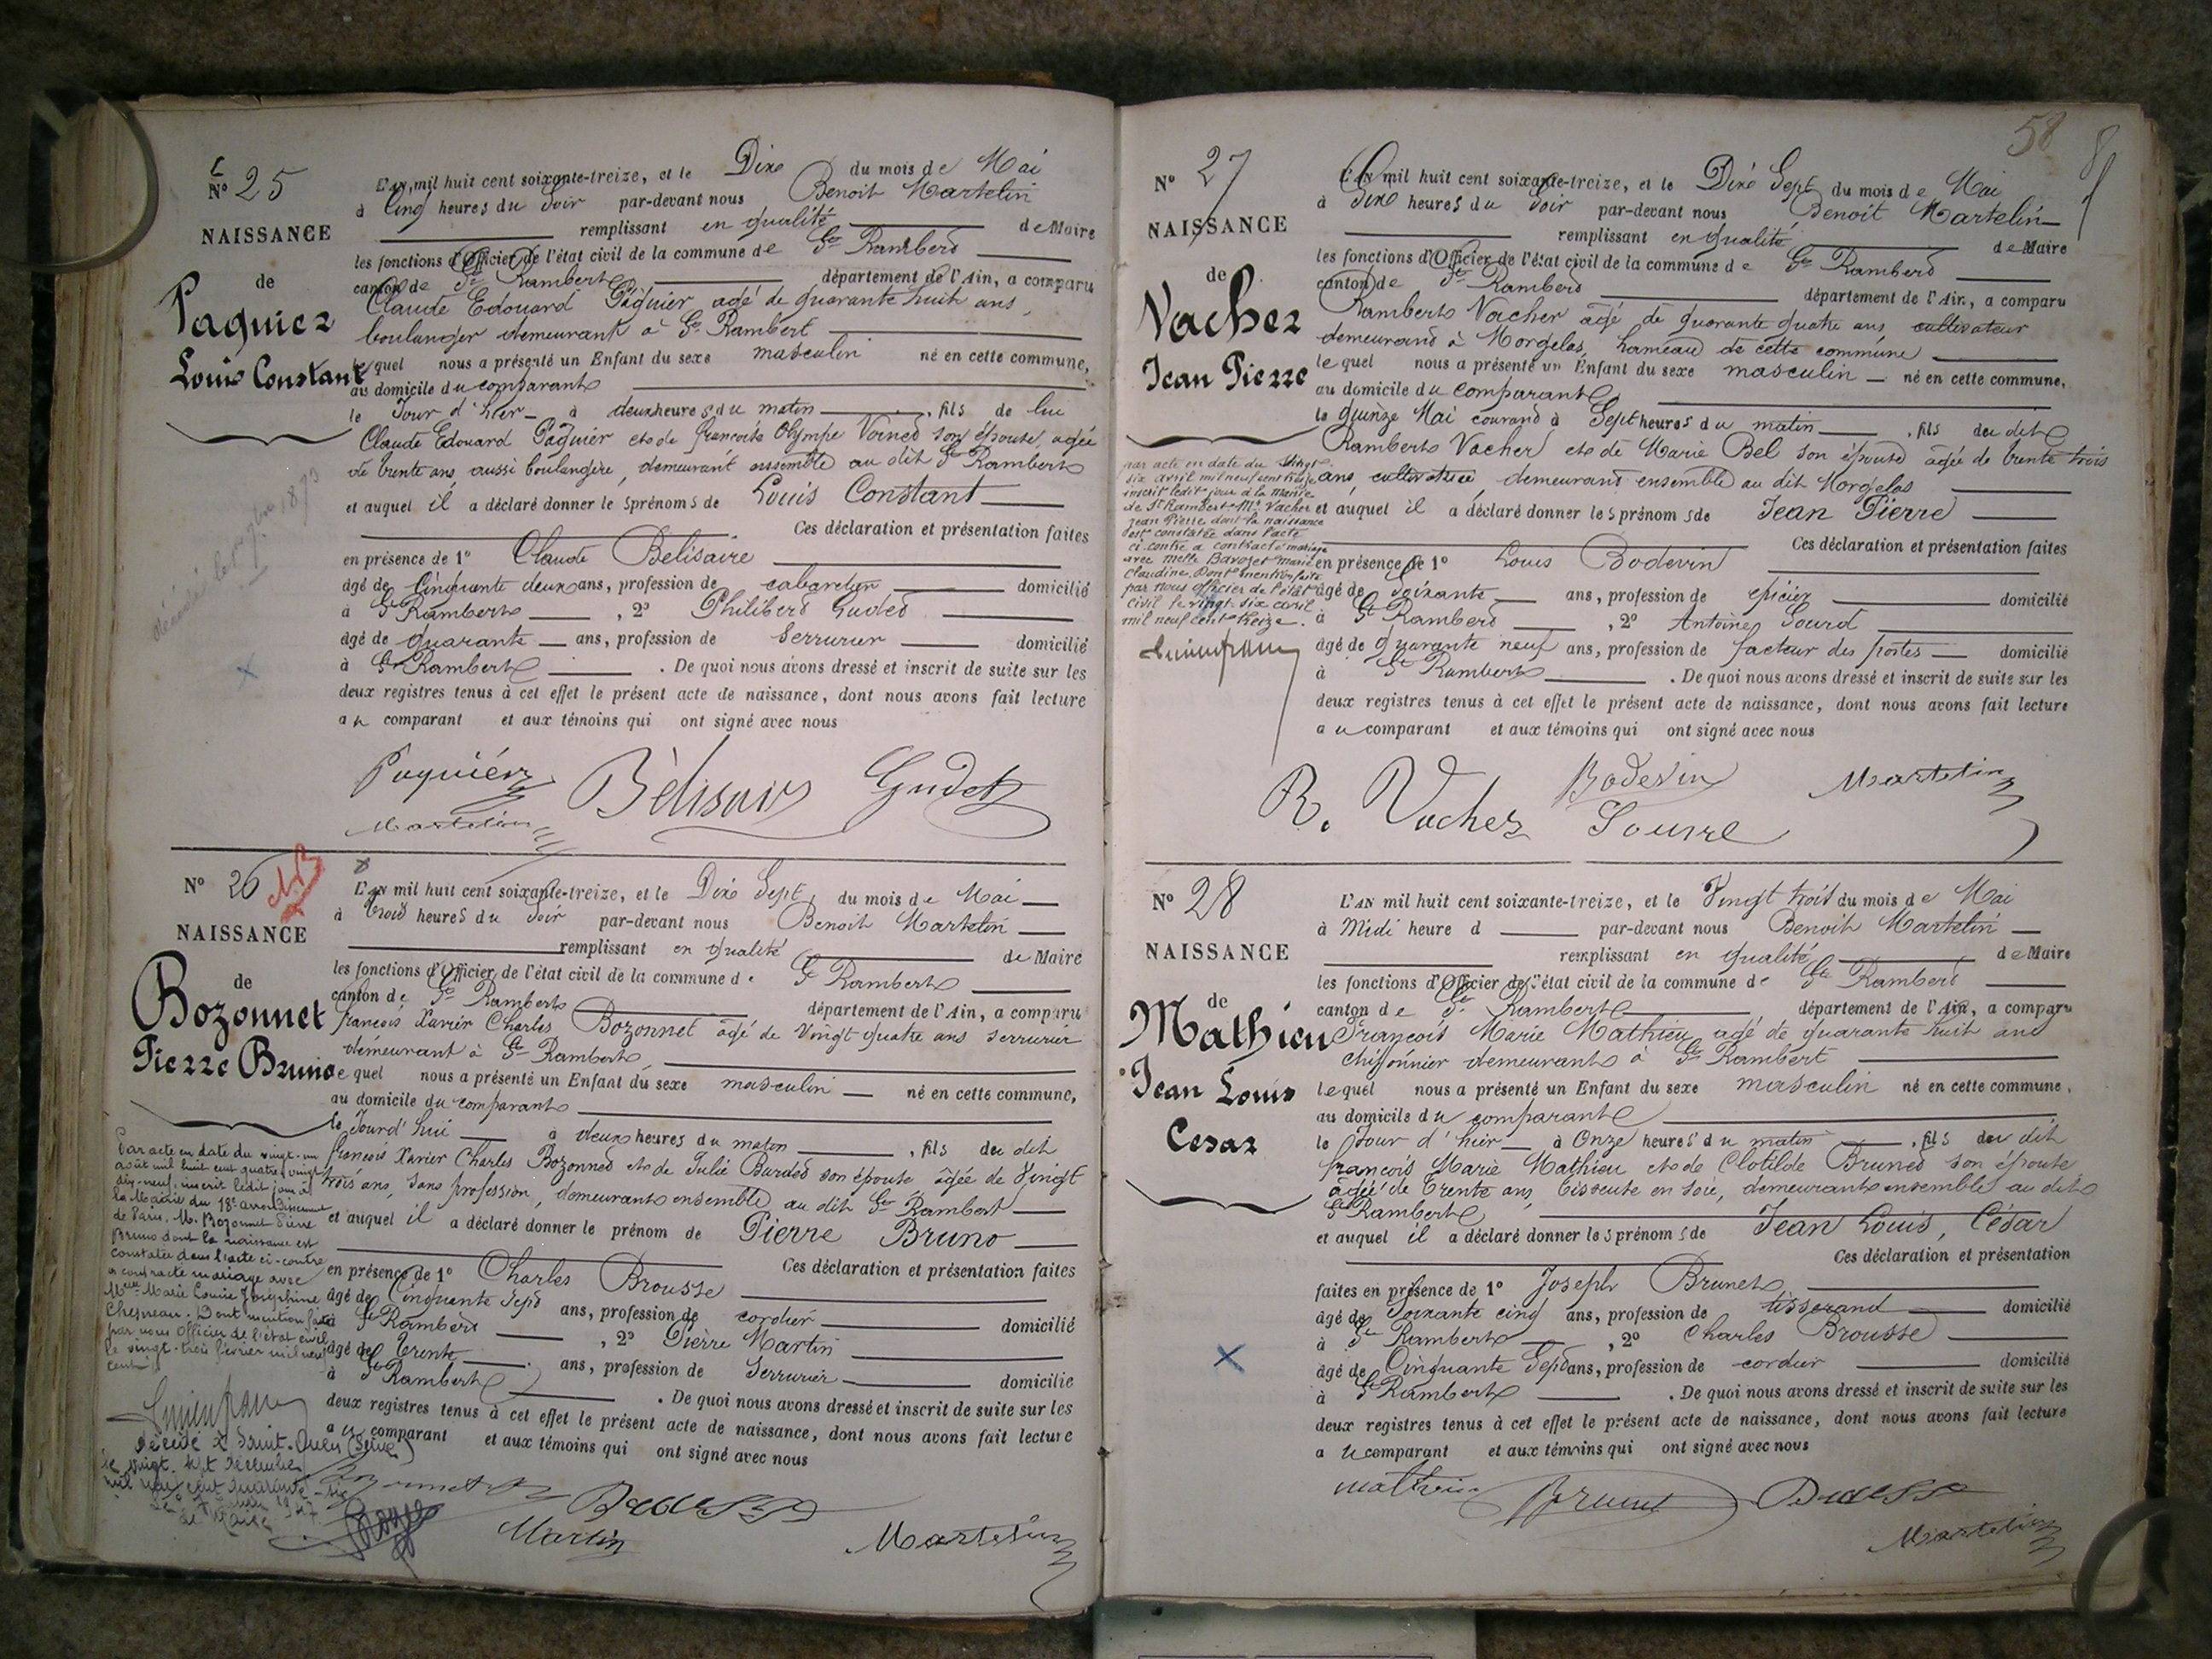 Nº 25
NAISSANCE
de
Paquier
Louis Constant
L'AN mil huit cent soixante-treize, et le Dix du mois de Mai
à Cinq heures du Soir par-devant nous Benoit Martelin
remplissant en qualité de Maire
les fonctions d'Officier de l'état civil de la commune de St Rambert
canton de St Rambert département de l'Ain, a comparu
Claude Edouard Paquier agé de quarante huit ans,
boulanger demeurant à St Rambert
lequel nous a présenté un Enfant du sexe masculin né en cette commune,
au domicile du comparant
le Jour d'hier à deux heures du matin, fils de lui
Claude Edouard Paquier et de françoise Olympe son épouse agée
de trente ans, aussi boulangère, demeurant ensemble au dit St Rambert
et auquel il a déclaré donner les prénoms de Louis Constant
Ces déclaration et présentation faites
en présence de 1º Claude Belisaire
âgé de Cinquante deux ans, profession de cabaretier domicilié
à St Rambert, 2º Philibert Gudet
âgé de quarante ans, profession de Serrurier domicilié
à St Rambert. De quoi nous avons dressé et inscrit de suite sur les
deux registres tenus à cet effet le présent acte de naissance, dont nous avons fait lecture
au comparant et aux témoins qui ont signé avec nous
Paquier Bélisair Gudet
Martelin
Nº 26
NAISSANCE
de
Bozonnet
Pierre Bruno
L'AN mil huit cent soixante-treize, et le Dix Sept du mois de Mai
à trois heures du Soir par-devant nous Benoit Martelin
remplissant en qualité de Maire
les fonctions d'Officier de l'état civil de la commune de St Rambert
canton de St Rambert département de l'Ain, a comparu
françois Xavier Charles Bozonnet âgé de Vingt quatre ans serrurier
demeurant à St Rambert
lequel nous a présenté un Enfant du sexe masculin né en cette commune,
au domicile du comparant
le Jourd'hui à deux heures du matin, fils du dit
françois Xavier Charles Bozonnet et de Julie Burdet son épouse âgée de Vingt
trois ans, sans profession, demeurant ensemble au dit St Rambert
et auquel il a déclaré donner le prénom de Pierre Bruno
Ces déclaration et présentation faites
en présence de 1º Charles Brousse
âgé de Cinquante Sept ans, profession de cordier domicilié
à St Rambert, 2º Pierre Martin
âgé de Trente ans, profession de Serrurier domicilié
à St Rambert. De quoi nous avons dressé et inscrit de suite sur les
deux registres tenus à cet effet le présent acte de naissance, dont nous avons fait lecture
au comparant et aux témoins qui ont signé avec nous
Par acte en date du vingt-un
août mil huit cent quatre vingt
dix-neuf, inscrit ledit jour à
la Mairie du 18e arrondissement
de Paris, M. Bozonnet Pierre
Bruno dont la naissance est
constatée dans l'acte ci-contre
a contracté mariage avec
Melle Marie Louise Joséphine
Chesneau. Dont mention faite
par nous Officier de l'état civil
le vingt-trois février mil neuf
cent
Décédé à Saint-Ouen (Seine)
le vingt-sept Décembre
mil neuf cent quarante-six
Bozonnet Brousse
Martin Martelin
58
Nº 27
NAISSANCE
de
Vacher
Jean Pierre
L'AN mil huit cent soixante-treize, et le Dix Sept du mois de Mai
à Six heures du Soir par-devant nous Benoit Martelin
remplissant en qualité de Maire
les fonctions d'Officier de l'état civil de la commune de St Rambert
canton de St Rambert département de l'Ain, a comparu
Rambert Vacher agé de quarante quatre ans cultivateur
demeurant à Morgelas, hameau de cette commune
lequel nous a présenté un Enfant du sexe masculin né en cette commune,
au domicile du comparant
le quinze Mai courant à Sept heures du matin, fils du dit
Rambert Vacher et de Marie Bel son épouse âgée de trente trois
ans, cultivatrice demeurant ensemble au dit Morgelas
et auquel il a déclaré donner les prénoms de Jean Pierre
Ces déclaration et présentation faites
en présence de 1º Louis Bodevin
âgé de Soixante ans, profession de épicier domicilié
à St Rambert, 2º Antoine Sourd
âgé de quarante neuf ans, profession de facteur des postes domicilié
à St Rambert. De quoi nous avons dressé et inscrit de suite sur les
deux registres tenus à cet effet le présent acte de naissance, dont nous avons fait lecture
au comparant et aux témoins qui ont signé avec nous
par acte en date du vingt
six avril mil neuf cent treize
inscrit ledit jour à la Mairie
de St Rambert Mr Vacher
Jean Pierre dont la naissance
est constatée dans l'acte
ci-contre a contracté mariage
avec Melle Bavozet Marie
Claudine. Dont mention faite
par nous officier de l'état
civil le vingt-six avril
mil neuf cent treize.
R. Vacher Bodevin Martelin
Nº 28
NAISSANCE
de
Mathieu
Jean Louis
Cesar
L'AN mil huit cent soixante-treize, et le Vingt trois du mois de Mai
à Midi heure d par-devant nous Benoit Martelin
remplissant en qualité de Maire
les fonctions d'Officier de l'état civil de la commune de St Rambert
canton de St Rambert département de l'Ain, a comparu
François Marie Mathieu agé de quarante huit ans
chiffonnier demeurant à St Rambert
lequel nous a présenté un Enfant du sexe masculin né en cette commune,
au domicile du comparant
le Jour d'hier à Onze heures du matin, fils du dit
françois Marie Mathieu et de Clotilde Brunet son épouse
âgée de Trente ans, tisseuse en soie, demeurant ensemble au dit
St Rambert
et auquel il a déclaré donner les prénoms de Jean Louis, César
Ces déclaration et présentation
faites en présence de 1º Joseph Brunet
âgé de Soixante cinq ans, profession de tisserand domicilié
à St Rambert, 2º Charles Brousse
âgé de Cinquante Sept ans, profession de cordier domicilié
à St Rambert. De quoi nous avons dressé et inscrit de suite sur les
deux registres tenus à cet effet le présent acte de naissance, dont nous avons fait lecture
au comparant et aux témoins qui ont signé avec nous
Mathieu Brunet Brousse
Martelin